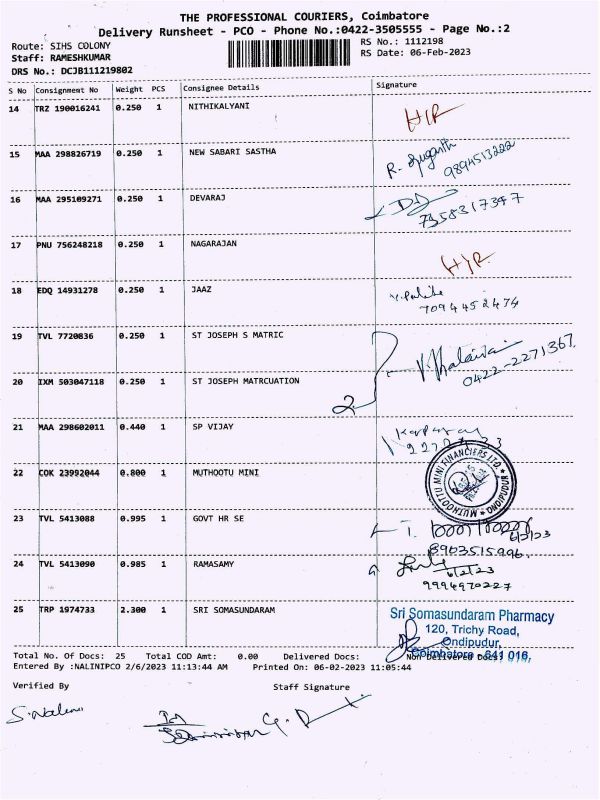 THE PROFESSIONAL COURIERS, Coimbatore
Delivery Runsheet - PCO - Phone No.:0422-3505555 - Page No.:2
Route: SIHS COLONY RS No.: 1112198
Staff: RAMESHKUMAR RS Date: 06-Feb-2023
DRS No.: DCJB111219802
S No Consignment No Weight PCS Consignee Details Signature
14 TRZ 190016241 0.250 1 NITHIKALYANI
15 MAA 298826719 0.250 1 NEW SABARI SASTHA
9894513222
16 MAA 295109271 0.250 1 DEVARAJ
7358317347
17 PNU 756248218 0.250 1 NAGARAJAN
18 EDQ 14931278 0.250 1 JAAZ
7094452474
19 TVL 7720836 0.250 1 ST JOSEPH S MATRIC
0422-2271367.
20 IXM 503047118 0.250 1 ST JOSEPH MATRCUATION
2
21 MAA 298602011 0.440 1 SP VIJAY
22 COK 23992044 0.800 1 MUTHOOTU MINI
MUTHOOTTU MINI FINANCIERS LTD. ONDIPUDUR
23 TVL 5413088 0.995 1 GOVT HR SE
6/2/23
8903515996.
24 TVL 5413090 0.985 1 RAMASAMY
6/2/23
9994970227
25 TRP 1974733 2.300 1 SRI SOMASUNDARAM
Sri Somasundaram Pharmacy
120, Trichy Road,
Ondipudur,
Coimbatore - 641 016,
Total No. Of Docs: 25 Total COD Amt: 0.00 Delivered Docs: Non Delivered Docs:
Entered By :NALINIPCO 2/6/2023 11:13:44 AM Printed On: 06-02-2023 11:05:44
Verified By Staff Signature